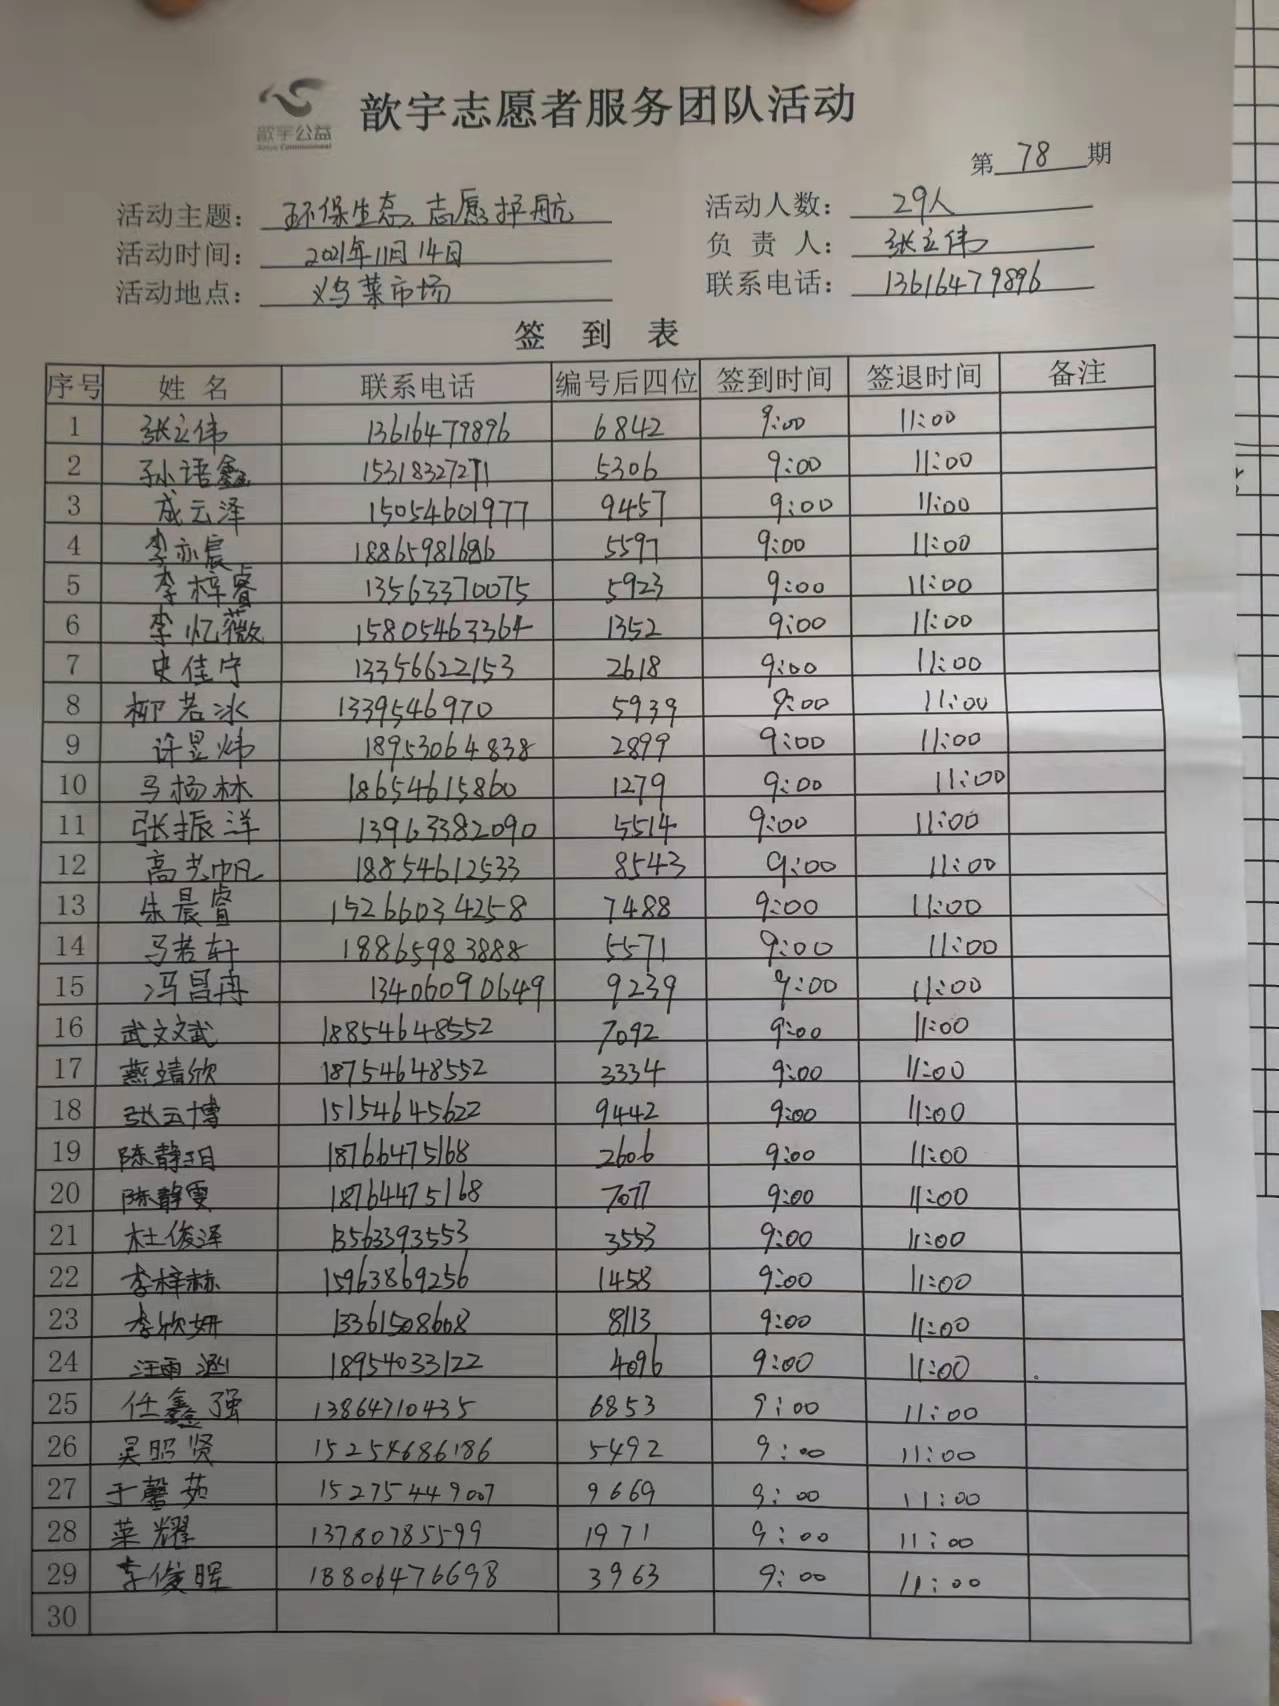 歆宇公益
歆宇志愿者服务团队活动
第 78 期
活动主题： 环保生态、志愿护航 活动人数： 29人
活动时间： 2021年11月14日 负 责 人： 张立伟
活动地点： 义乌菜市场 联系电话： 13616479896
签 到 表
序号 姓 名 联系电话 编号后四位 签到时间 签退时间 备注
1 张立伟 13616479896 6842 9:00 11:00
2 孙语鑫 15318327271 5306 9:00 11:00
3 成云泽 15054601977 9457 9:00 11:00
4 李亦宸 18865981686 5597 9:00 11:00
5 李梓睿 13563370075 5923 9:00 11:00
6 李忆薇 15805463364 1352 9:00 11:00
7 史佳宁 13356622153 2618 9:00 11:00
8 柳若冰 1339546970 5939 9:00 11:00
9 许昱炜 18953064838 2899 9:00 11:00
10 马杨林 18654615860 1279 9:00 11:00
11 张振洋 13963382090 5514 9:00 11:00
12 高艺帆 18854612533 8543 9:00 11:00
13 朱晨睿 15266034258 7488 9:00 11:00
14 马若轩 18865983888 5571 9:00 11:00
15 冯昌冉 13406090649 9239 9:00 11:00
16 武文斌 18854648552 7092 9:00 11:00
17 燕靖欣 18754648552 3334 9:00 11:00
18 张云博 15154645622 9442 9:00 11:00
19 陈静 18766475168 2606 9:00 11:00
20 陈静雯 18764475168 7077 9:00 11:00
21 杜俊泽 13563393553 3553 9:00 11:00
22 李梓赫 15963869256 1458 9:00 11:00
23 李欣妍 13361508608 8113 9:00 11:00
24 汪雨涵 18954033122 4096 9:00 11:00
25 任鑫强 13864710435 6853 9:00 11:00
26 吴昭贤 15254686186 5492 9:00 11:00
27 于馨茹 15275449007 9669 9:00 11:00
28 菜耀 13780785599 1971 9:00 11:00
29 李俊晖 18806476698 3963 9:00 11:00
30